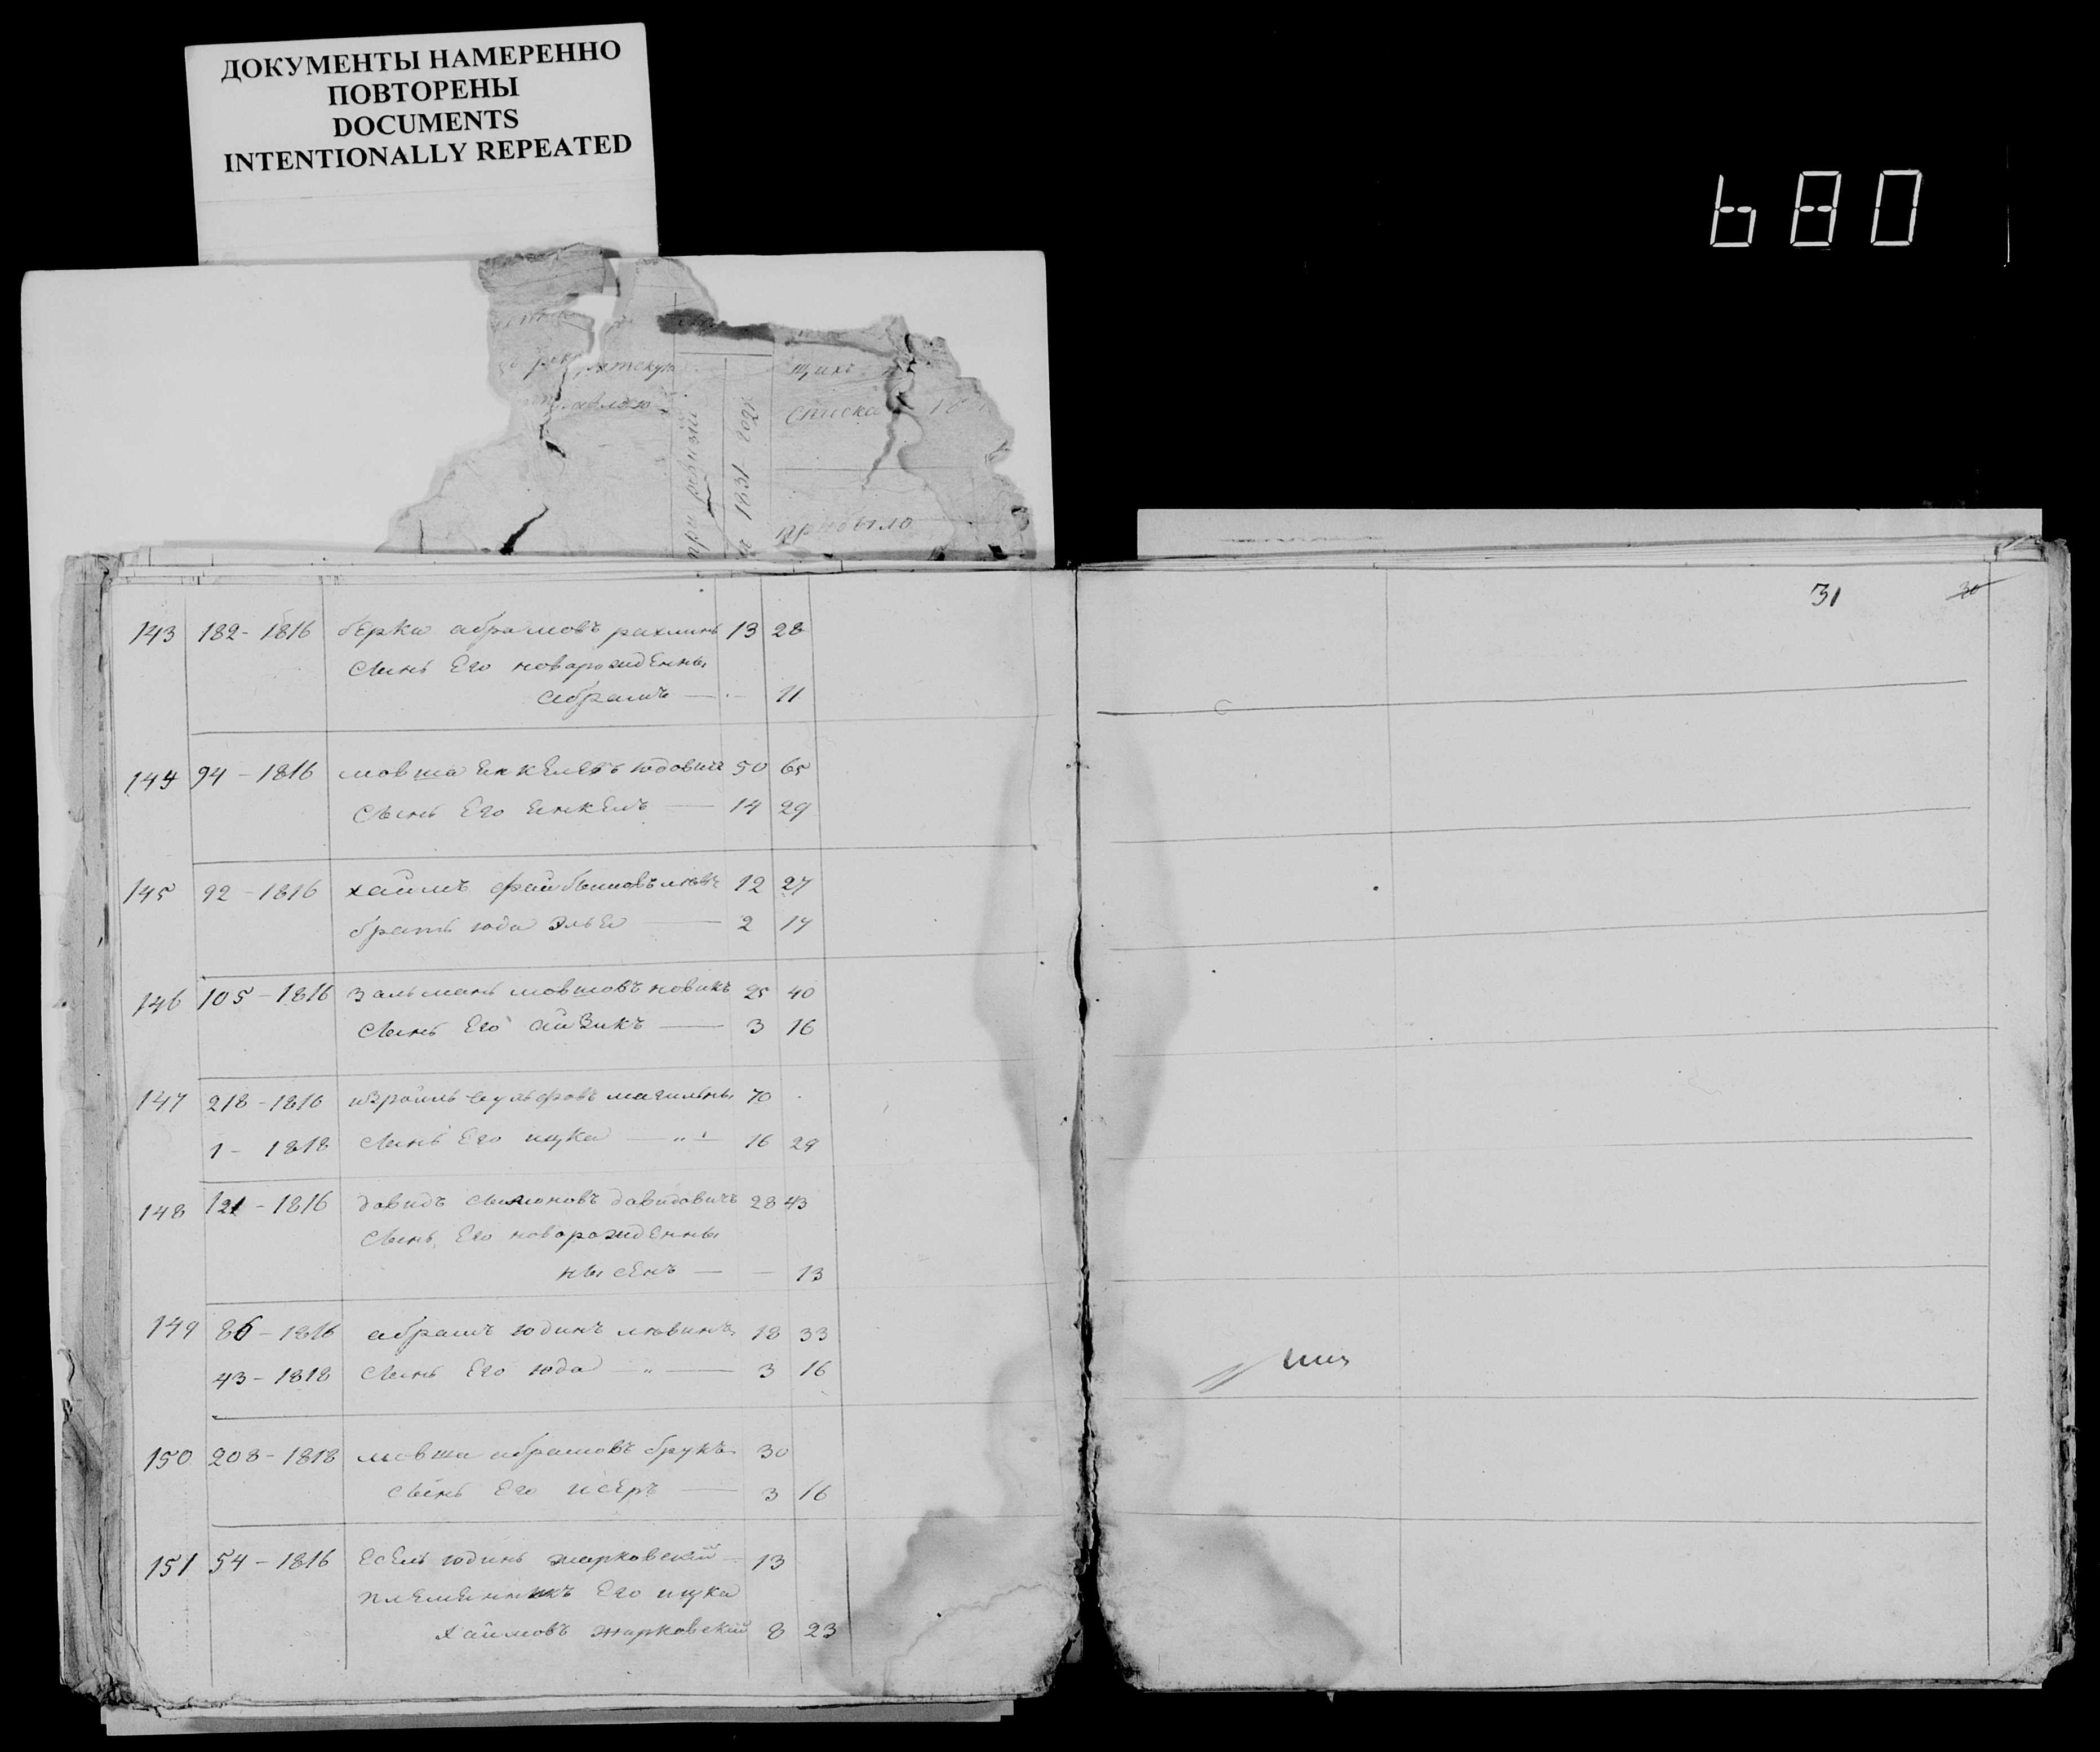 ДОКУМЕНТЫ НАМЕРЕННО
ПОВТОРЕНЫ
DOCUMENTS
INTENTIONALLY REPEATED
680
при ревизии
1831 года
щихъ
списка
прибыло
31 30
143 182 - 1816 берка абрамовъ рахлинъ 13 28
сынъ Его новарожденны
абрамъ — - 11
144 94 - 1816 мовша енкелевъ юдовичъ 50 65
сынъ Его енкель — 14 29
145 92 - 1816 хаимъ файбышовъ 12 27
братъ юда эльея — 2 14
146 105 - 1816 зальманъ мовшовъ новикъ 25 40
сынъ Его айзикъ — 3 16
147 218 - 1816 израиль вульфовъ магильны 70
1 - 1818 сынъ Его ицка — „ — 16 29
148 121 - 1816 давидъ симоновъ давидовичъ 28 43
сынъ Его новорожденны
нысенъ — — 13
149 86 - 1816 абрамъ юдинъ левинъ 18 33
43 - 1818 сынъ Его юда — „ — 3 16
150 208 - 1818 мовша абрамовъ брукъ 30
сынъ Его исеръ — 3 16
151 54 - 1816 есель юдинъ жарковскій — 13
племенникъ Его ицка
хаимовъ жарковскій 8 23